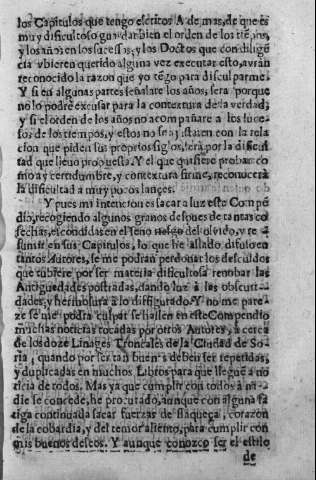 los Capitulos que tengo escritos A de mas, de que es
muy dificultoso guardar bien el orden de los tiẽpos,
y los años en los sucessos, y los Doctos que con diligẽ
cia vbieren querido alguna vez executar esto, avràn
reconocido la razon que yo tẽgo para disculparme.
Y si en algunas partes señalare los años, serà porque
no lo podrè excusar para la contextura de la verdad;
y si el orden de los años no acompañare a los suce-
sos, de los tiempos, y estos no se ajustaren con la rela
cion que piden sus proprios siglos, serà por la dificul
tad que llevo propuesta. Y el que quisiere probar co-
mo ay certidumbre, y contextura firme, reconocerà
la dificultad a muy pocos lances.
Y pues mi intencion es sacar a luz este Compẽ
dio, recogiendo algunos granos despues de tantas co
sechas, escondidas en el seno del olvido, y re
sumir en sus Capitulos, lo que he allado difuso en
tantos Autores, se me podràn perdonar los descuidos
que tubiere por ser materia dificultosa renobar las
Antiguedades postradas, dando luz à las obscuri-
dades, y hermosura à lo disfigurado. Y no me pare-
ze se me podrà culpar se hallen en este Compendio
muchas noticias tocadas por otros Autores, à cerca
de los doze Linages Troncales de la Ciudad de So-
ria, quando por ser tan buenas deben ser repetidas,
y duplicadas en muchos Libros para que llegue a no
ticia de todos. Mas ya que cumplir con todos à na-
die se concede, he procurado, aunque con alguna fa
tiga continuada sacar fuerzas de flaqueça, corazon
de la cobardia, y del temor aliento, para cumplir con
mis buenos deseos. Y aunque conozco ser el estilo
de